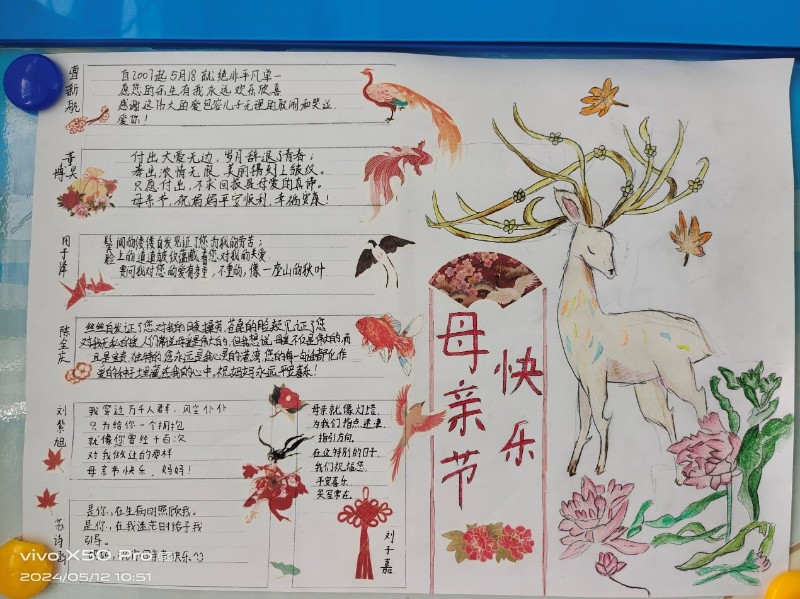 曹新航
自2007起5月18就绝非平凡单一
愿您的余生有我永远欢乐欣喜
感谢这伟大的爱包容儿千无理的取闹和哭泣
爱你！
董博昊
付出大爱无边，岁月辞退了青春；
奉出浓情无限，美丽携刻上皱纹。
只愿付出，不求回报是母爱的真谛。
母亲节，祝妈妈平安顺利，幸福安康！
周子泽
鬓间的缕缕白发见证了您为我的劳苦；
脸上的道道皱纹蕴藏着您对我的关爱.
要问我对您的爱有多重，不重的，像一座山的秋叶
陈全庆
丝丝白发证了您对我的日夜操劳，苍桑的脸起见证了您
对我无私的爱，人们都说母爱是伟大的，但我想说，母爱不仅是伟大的，而
且是
爱的
我的心中，祝妈妈永远平安喜乐！
刘紫旭
我穿过万千人群，风尘仆仆
只为给你一个拥抱
就像你曾经千百次
对我做过的那样
母亲节快乐，妈妈！
母亲就像灯塔，
为我们指点迷津
指引方向。
在这特别的日子，
我们祝福您
平安喜乐
笑容常在。
刘子嘉
是你，在生病时照顾我。
是你，在我迷茫时给予我
引导。
快乐
母亲节
快乐
vivo X50 Pro
2024/05/12 10:51